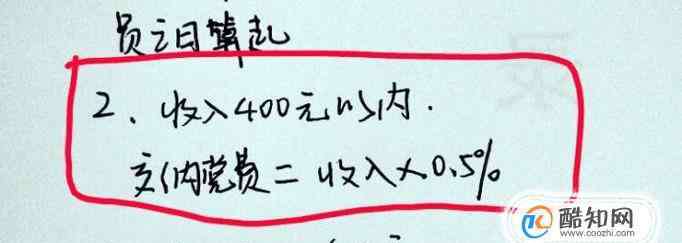 员之日算起
2、收入400元以内.
交纳党费=收入×0.5%
酷知网
www.coozhi.com